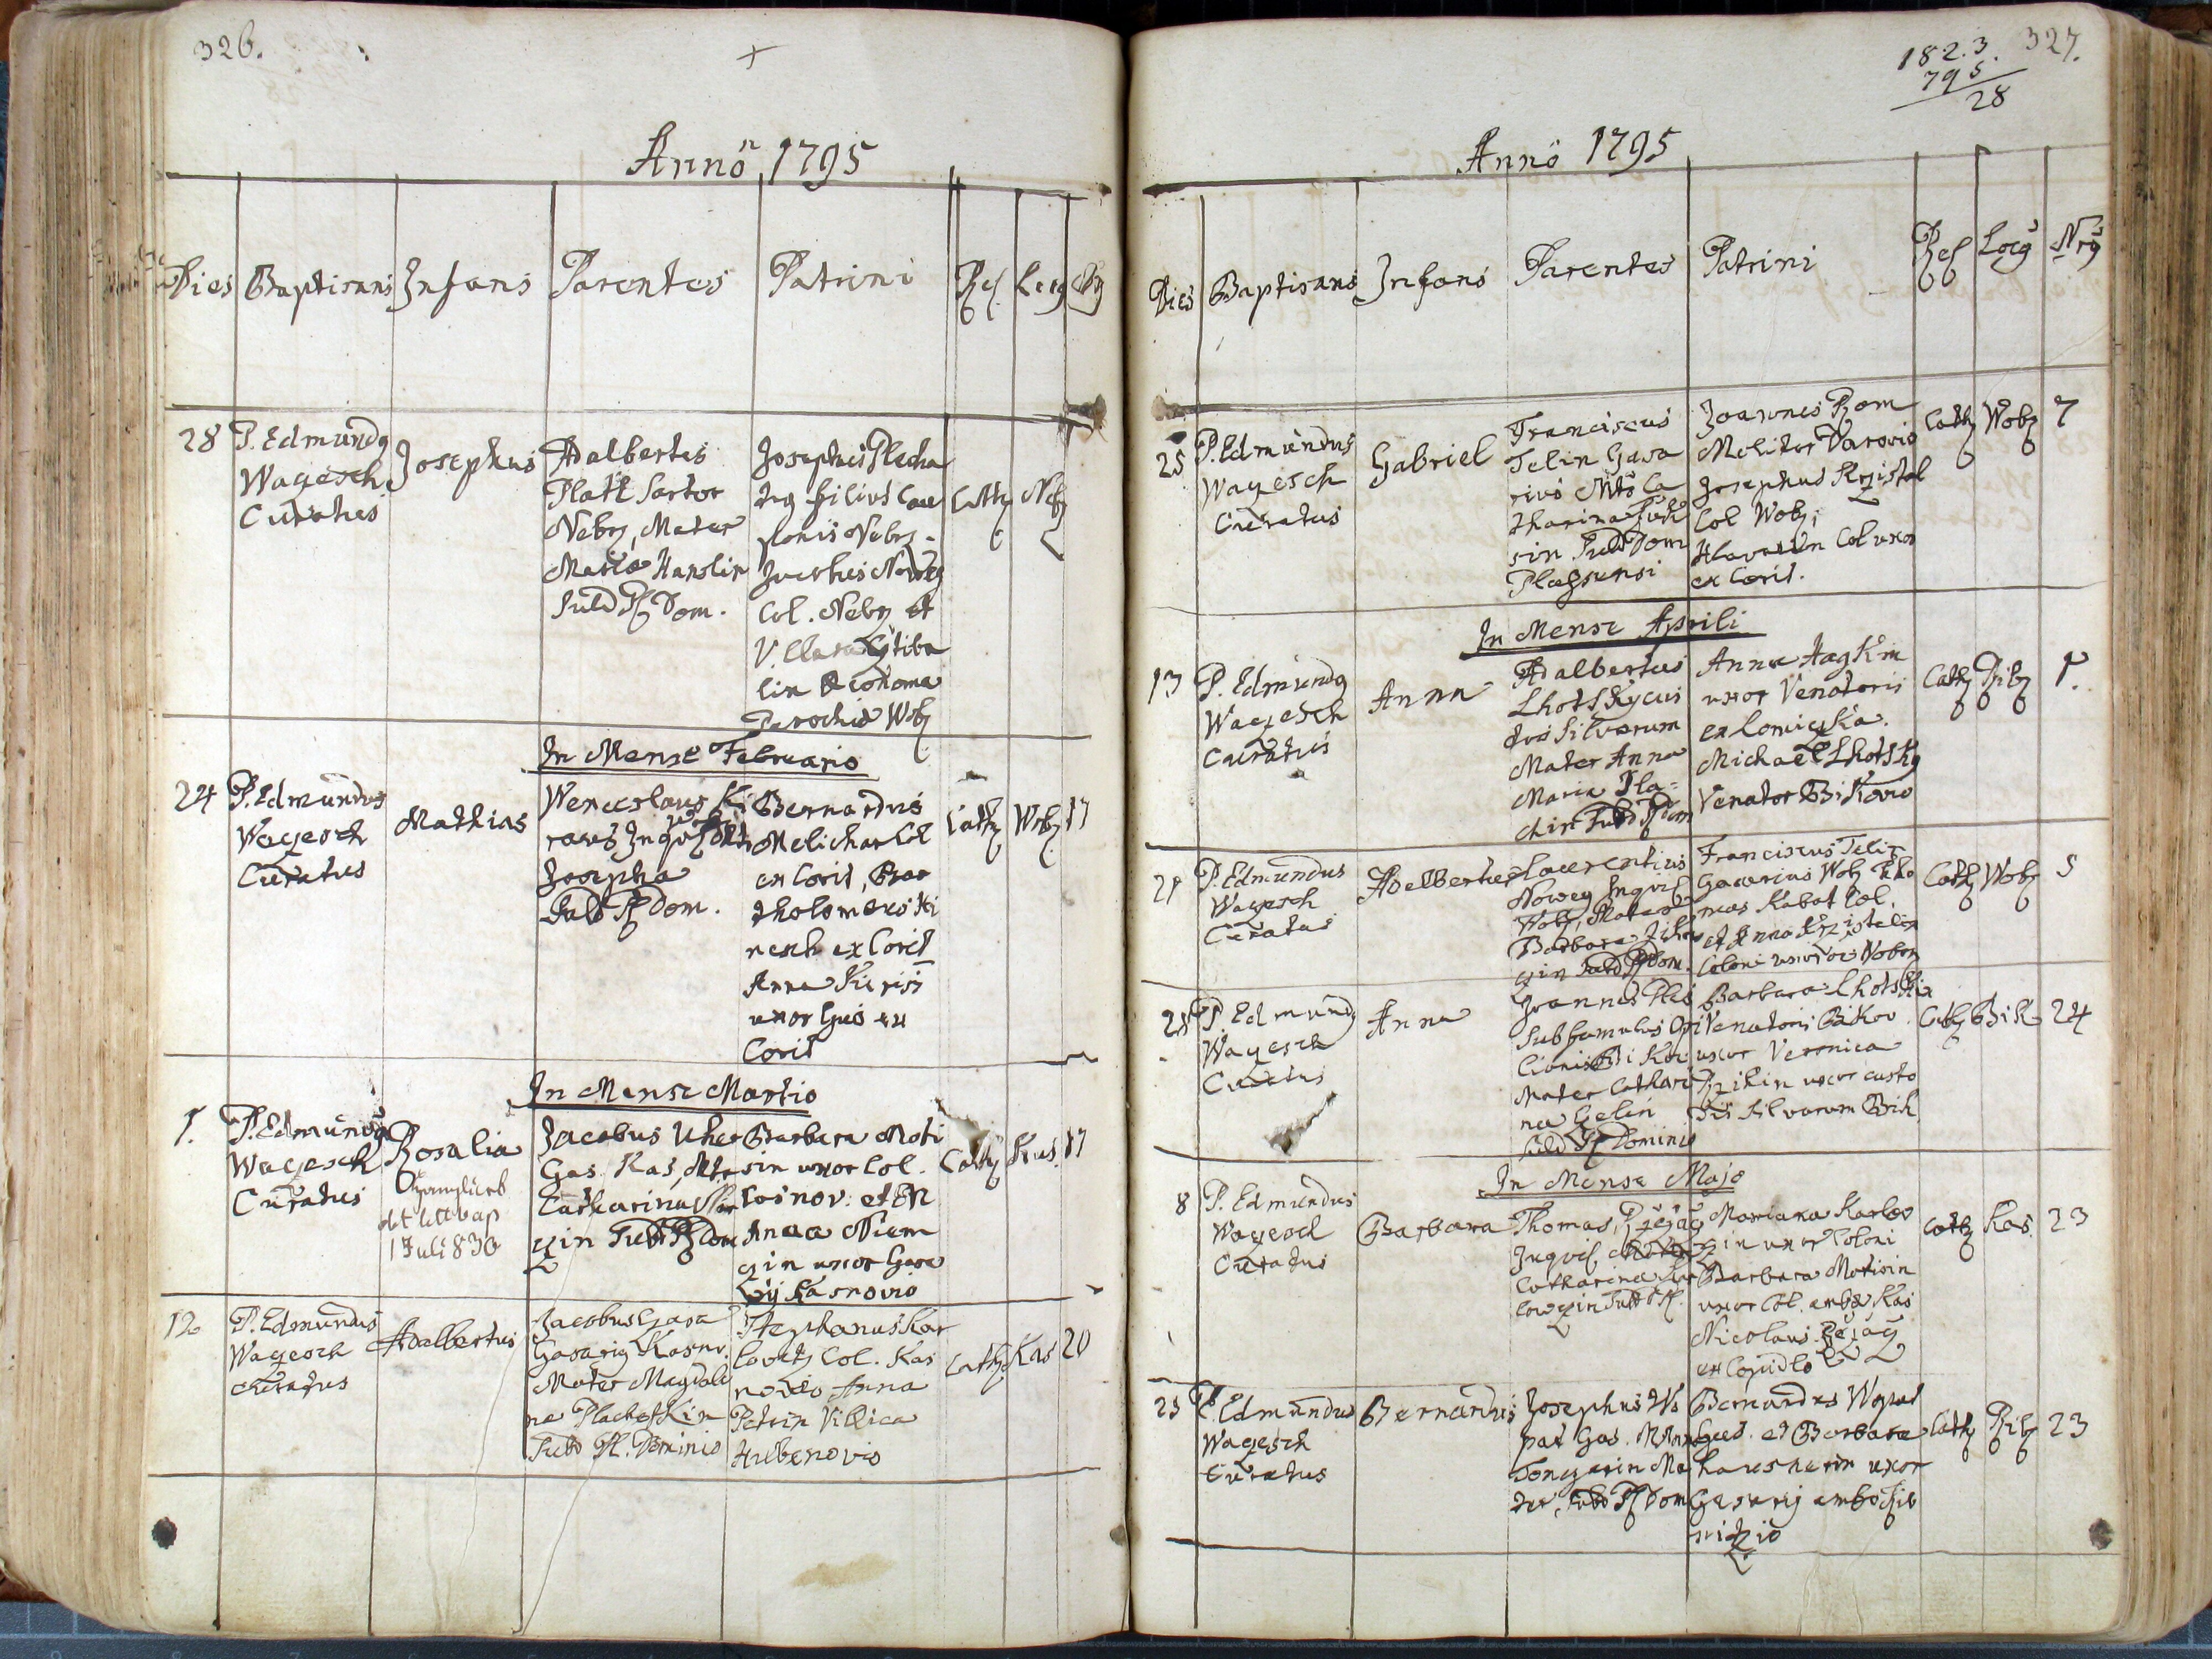 326.
Anno 1795
Dies Baptisans Infans Parentes Patrini Rel. Locg
28 P. Edmundg
Wagesch
Curatus
Josephus
Adalbertus
Platt Sartor
Neby, Mater
Maria Hanslin
Subd Pl Dom.
Josephus Plecha
Neby
Col. Neby et
V. Clara
lin Economa
Parochid Wobz
Cath Neb
In Mense Februario
24 P. Edmundus
Wagesch
Curatus
Mathias
Wenceslaus Ki
Josepha
Subd Pl Dom.
Bernardus
Melichar Col
ex Corit, Bar
tholomeus Hi
nesch ex Corit
Anna Kirisi
uxor Ejus ex
Corit
Cath Wobz 17
In Mense Martio
1. P. Edmundg
Wagesch
Curatus
Rosalia
1 Juli 830
Jacobus Uher
Gas. Kas, Mter
Catharina
Subd Pl Dom
Barbara Moti
sin uxor Col.
Cosnov: et
Anna Niem
gin uxor Gasa
Kasnovio
Cath Kas. 17
12 P. Edmundus
Wagesch
Curatus
Adalbertus
Jacobus Gasa
Gasarig Kasno.
Mater Magdale
na Plachetkin
Subd Pl. Dominio
Stephanus Kar
lovetz Col. Kas
novio Anna
Petrin Villica
Hubenovio
Cath. Kas 20
327.
182.3.
795
28
Anno 1795
Dies Baptisans Infans Parentes Patrini Rel Locg Nrg
25 P. Edmundus
Wagesch
Curatus
Gabriel
Franciscus
Telin Gasa
rius Mter Ca
tharina
sin Subd Dom
Plassensi
Joannes Rom
Molitor Darovio
Josephus Krzistal
Col Wobz;
Hlavatin Col uxor
ex Corit.
Cath Wobz 7
In Mense Aprili
13 P. Edmundg
Wagesch
Curatus
Anna
Adalbertus
Lhotsky cus
tos Silvarum
Mater Anna
Maria Pla=
chin Subd Pl Dom
Anna Hagkin
uxor Venatoris
ex Lomiczka.
Michael Lhotsky
Venator Bikovio
Cath Rib 1.
21 P. Edmundus
Wagesch
Curatus
Adelbertus
Laurentius
Nowey Inqvil
Wobz, Mater
Barbara
Subd Pl Dom.
Franciscus Telin
Gasarius Wobz Tho
mas Kabat Col.
et Anna Krzistelin
Coloni uxor ex Wobor
Cath Wobz 5
25 P. Edmundg
Wagesch
Curatus
Anna
Joannes Ples
Subfamulus Opi
lionis Bikov
Mater Cathari
na Gelin
Subd Pl Dominio
Barbara Lhotskin
Venatoris Bikov
uxor Veronica
uxor custo
dis Silvarum Bik
Cath Bik 24
In Mense Majo
8 P. Edmundus
Wagesch
Curatus
Barbara
Thomas Rzezag
Inqvil Mater
Catharina Kar
lowzin Subd Pl.
Mariana Karlov
zin uxor Coloni
Barbara Motisin
uxor Col. ambo Kas
Nicolaus Rezag
ex Copidlo
Cath Kas. 23
23 P. Edmundus
Wagesch
Curatus
Bernardus
Josephus Ws
pal Gas.
Tonzarin Ma
ter, Subd Pl Dom
Bernardus Wspal
Gas. et Barbara
hausnerin uxor
Gasarij ambo Rib
nizio
Cath Rib 23